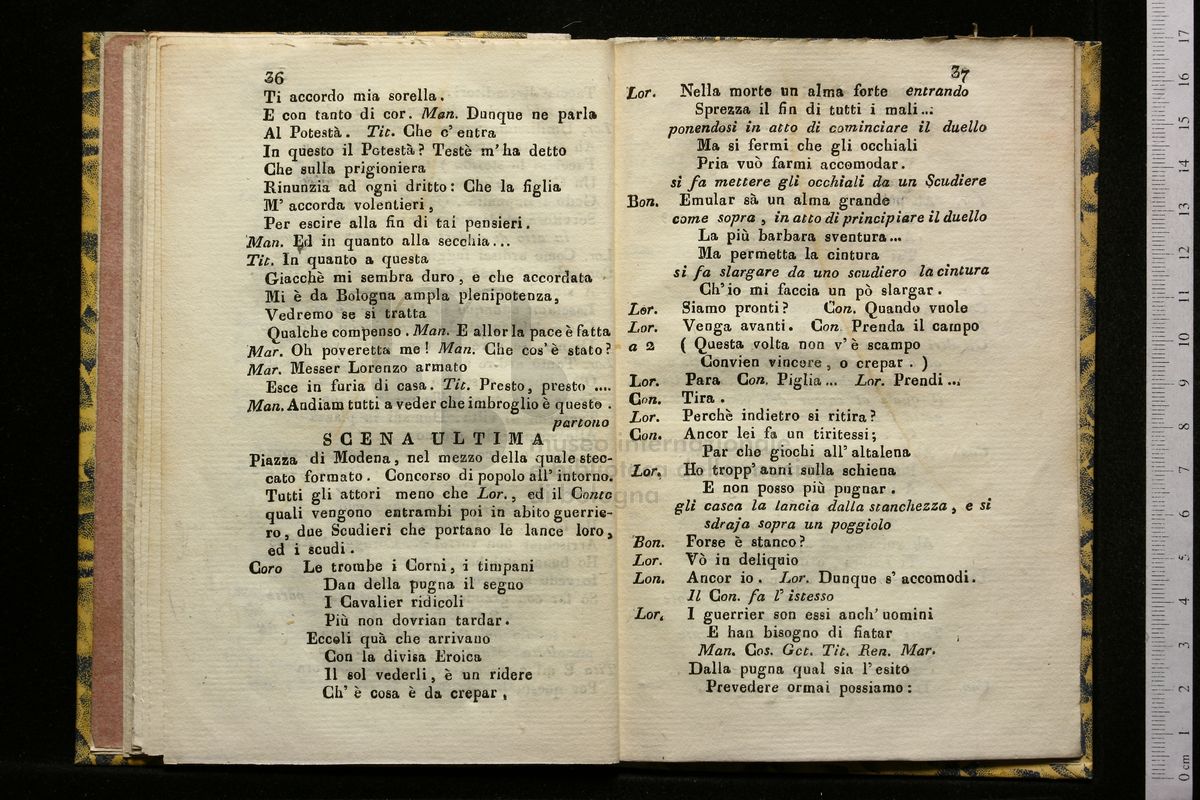 36
Ti accordo mia sorella.
E con tanto di cor. Man. Dunque ne parla
Al Potestà. Tit. Che c'entra
In questo il Potestà? Testè m'ha detto
Che sulla prigioniera
Rinunzia ad ogni dritto: Che la figlia
M'accorda volentieri,
Per escire alla fin di tai pensieri.
Man. Ed in quanto alla secchia...
Tit. In quanto a questa
Giacchè mi sembra duro, e che accordata
Mi è da Bologna ampla plenipotenza,
Vedremo se si tratta
Qualche compenso. Man. E allor la pace è fatta
Mar. Oh poveretta me! Man. Che cos'è stato?
Mar. Messer Lorenzo armato
Esce in furia di casa. Tit. Presto, presto ....
Man. Andiam tutti a veder che imbroglio è questo.
partono
SCENA ULTIMA
Piazza di Modena, nel mezzo della quale stec-
cato formato. Concorso di popolo all'intorno.
Tutti gli attori meno che Lor., ed il Conte
quali vengono entrambi poi in abito guerrie-
ro, due Scudieri che portano le lance loro,
ed i scudi.
Coro Le trombe i Corni, i timpani
Dan della pugna il segno
I Cavalier ridicoli
Più non dovrian tardar.
Eccoli quà che arrivano
Con la divisa Eroica
Il sol vederli, è un ridere
Ch'è cosa è da crepar,
37
Lor. Nella morte un alma forte entrando
Sprezza il fin di tutti i mali...
ponendosi in atto di cominciare il duello
Ma si fermi che gli occhiali
Pria vuò farmi accomodar.
si fa mettere gli occhiali da un Scudiere
Bon. Emular sà un alma grande
come sopra, in atto di principiare il duello
La più barbara sventura...
Ma permetta la cintura
si fa slargare da uno scudiero la cintura
Ch'io mi faccia un pò slargar.
Lor. Siamo pronti? Con. Quando vuole
Lor. Venga avanti. Con. Prenda il campo
a 2 (Questa volta non v'è scampo
Convien vincere, o crepar.)
Lor. Para Con. Piglia... Lor. Prendi...
Con. Tira.
Lor. Perchè indietro si ritira?
Con. Ancor lei fa un tiritessi;
Par che giochi all'altalena
Lor. Ho tropp'anni sulla schiena
E non posso più pugnar.
gli casca la lancia dalla stanchezza, e si
sdraja sopra un poggiolo
Bon. Forse è stanco?
Lor. Vò in deliquio
Lon. Ancor io. Lor. Dunque s'accomodi.
Il Con. fa l'istesso
Lor. I guerrier son essi anch'uomini
E han bisogno di fiatar
Man. Cos. Get. Tit. Ren. Mar.
Dalla pugna qual sia l'esito
Prevedere ormai possiamo: